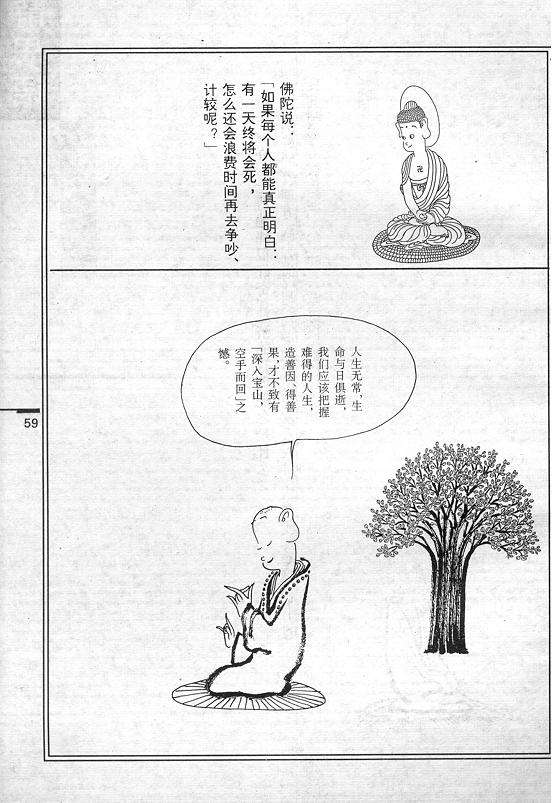 佛陀说：
「如果每个人都能真正明白：
有一天终将会死，
怎么还会浪费时间再去争吵、
计较呢？」
人生无常，生
命与日俱逝，
我们应该把握
难得的人生，
造善因、得善
果，才不致有
「深入宝山，
空手而回」之
憾。
59
卍